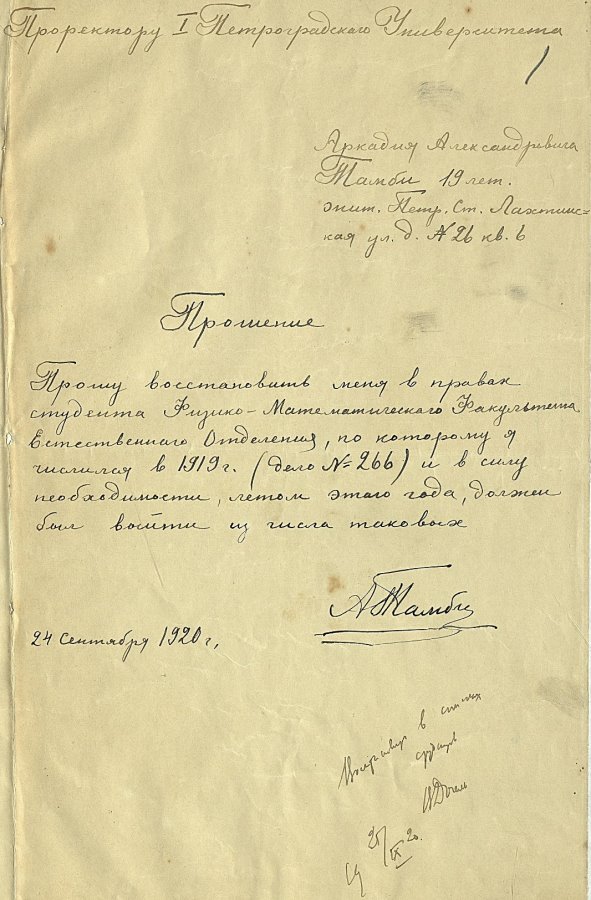 Проректору I Петроградскаго Университета
1
Аркадия Александревича
Тамби 19 лет.
жит. Петр. Ст. Лахтинс=
кая ул. д. № 26 кв. 6
Прошение
Прошу восстановить меня в правах
студента Физико-Математическаго Факультета
Естественнаго Отделения, по которому я
числился в 1919 г. (дело № 266) и в силу
необходимости, летом этаго года, должен
был выйти из числа таковых
АТамби
24 Сентября 1920 г,
в
25/IX 20.